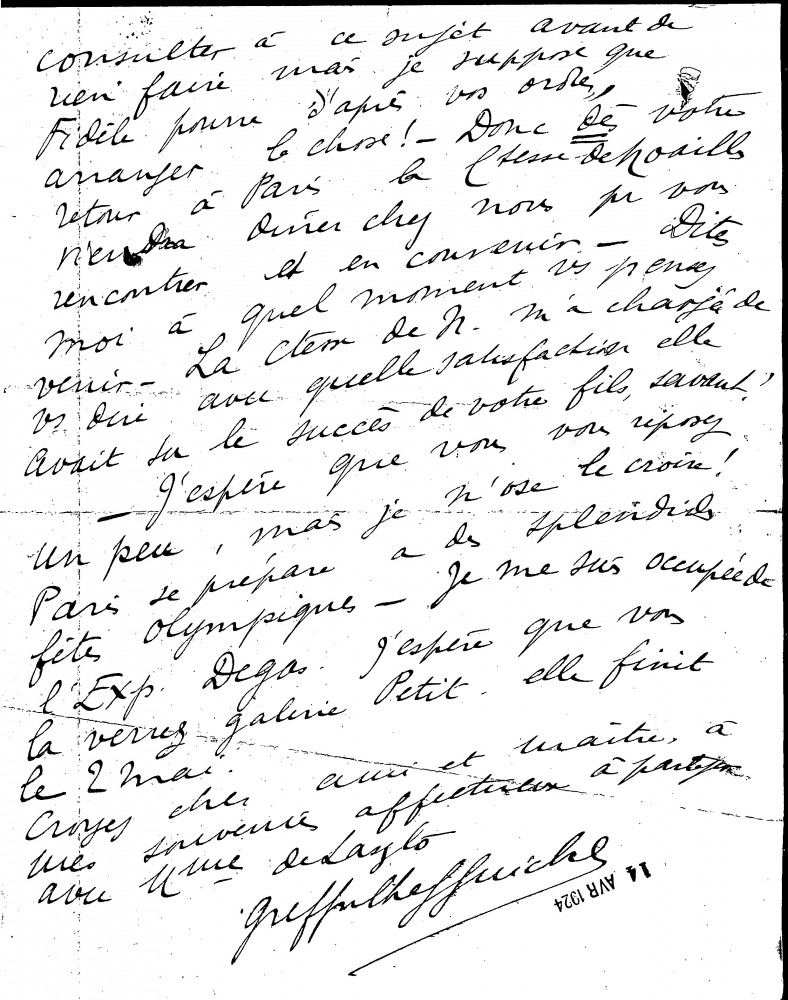 consulter à ce sujet avant de
rien faire mais je suppose que
Fidèle pourra d'après vos ordres,
arranger la chose! – Donc dès votre
retour à Paris la Ctesse de Noailles
viendra dîner chez nous pr vous
rencontrer et en convenir – Dites
moi à quel moment vs pensez
venir – La Ctesse de N. m'a chargée de
vs dire avec quelle satisfaction elle
avait su le succès de votre fils, savant!
– J'espère que vous vous reposez
un peu, mais je n'ose le croire!
Paris se prépare a des splendides
fêtes olympiques – Je me suis occupée de
l'Exp. Degas. J'espère que vous
la verrez galerie Petit. elle finit
le 2 mai.
Croyez cher ami et maître, à
mes souvenirs affectueux à partager
avec Mme de Laszlo
Greffulhe
14 AVR 1924